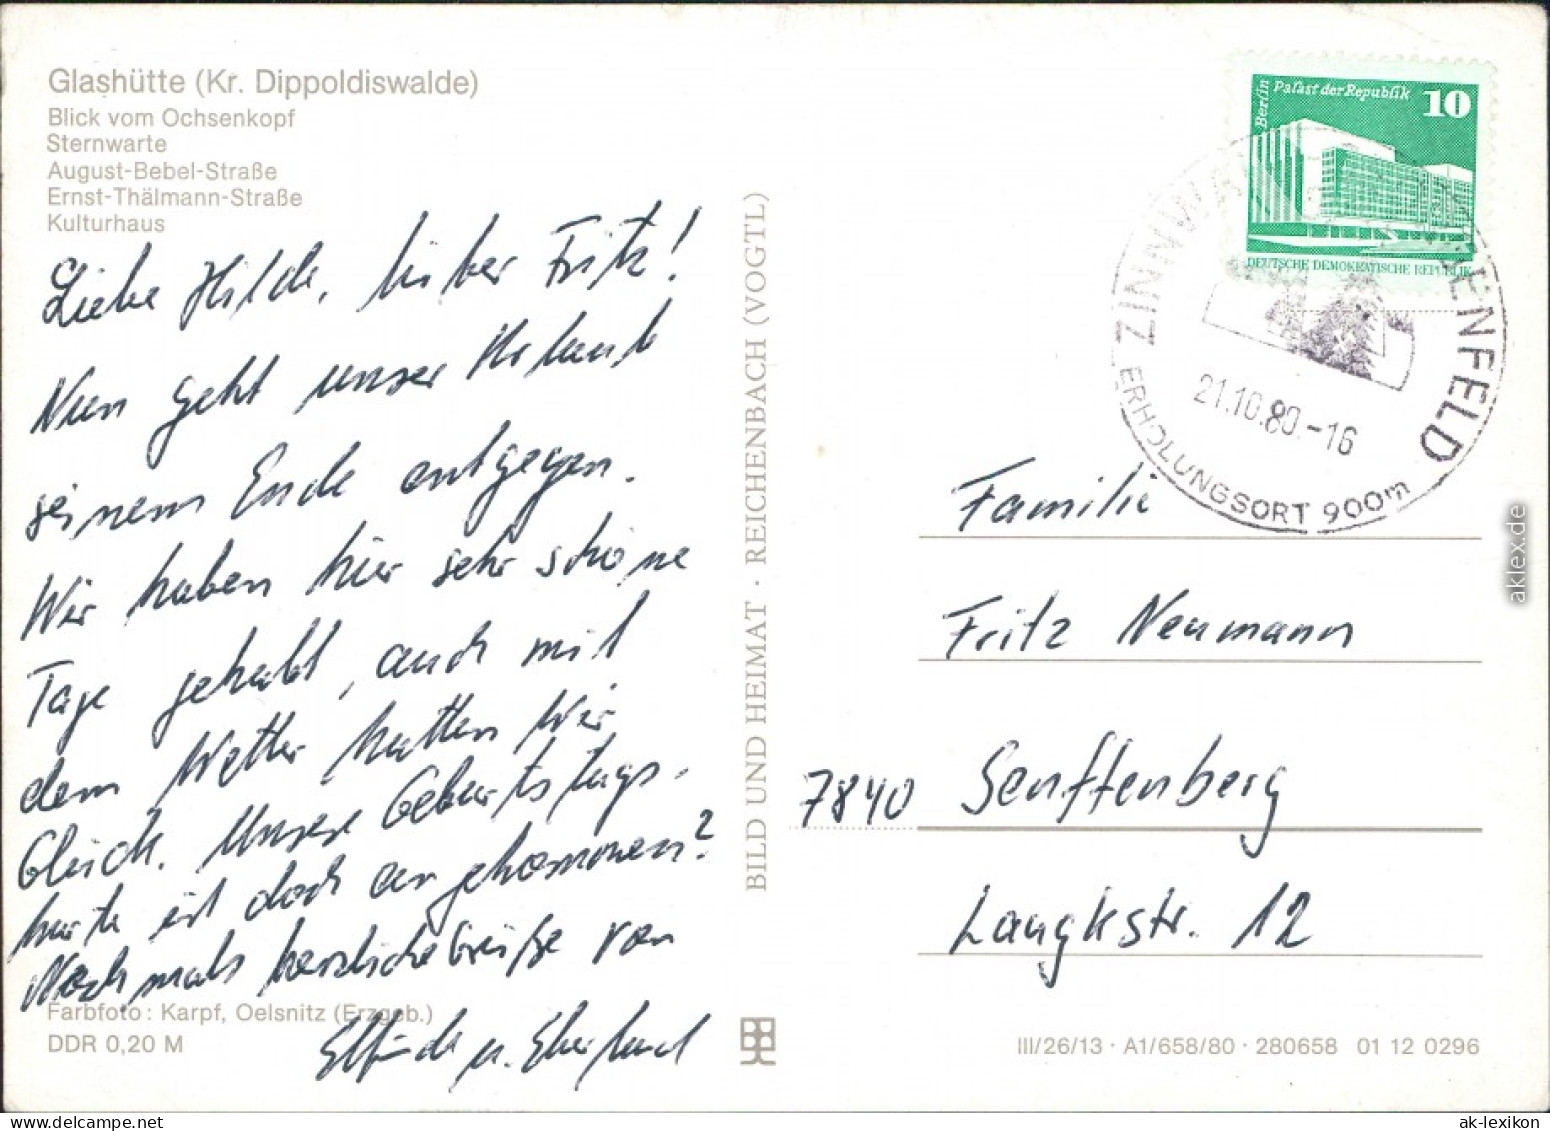 Glashütte (Kr. Dippoldiswalde)
Blick vom Ochsenkopf
Sternwarte
August-Bebel-Straße
Ernst-Thälmann-Straße
Kulturhaus
Liebe Hilde, lieber Fritz!
Nun geht unser Urlaub
seinem Ende entgegen.
Wir haben hier sehr schöne
Tage gehabt, auch mit
dem Wetter hatten wir
Glück. Unsere Geburtstags-
karte ist doch angekommen?
Nochmals herzliche Grüße von
Elfriede u. Eberhard
Farbfoto: Karpf, Oelsnitz (Erzgeb.)
DDR 0,20 M
BILD UND HEIMAT · REICHENBACH (VOGTL)
Berlin
Palast der Republik
10
DEUTSCHE DEMOKRATISCHE REPUBLIK
21.10.80.-16
ERHOLUNGSORT 900m
Familie
Fritz Neumann
7840 Senftenberg
Langkstr. 12
III/26/13 · A1/658/80 · 280658 01 12 0296
aklex.de
ak-lexikon